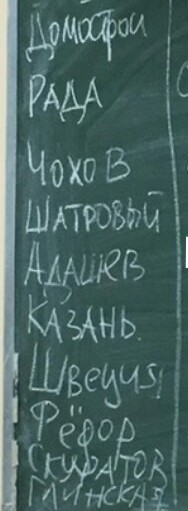 Домострой
Рада
Чохов
Шатровый
Адашев
Казань.
Швеция
Фёдор
Скуратов
Глинская